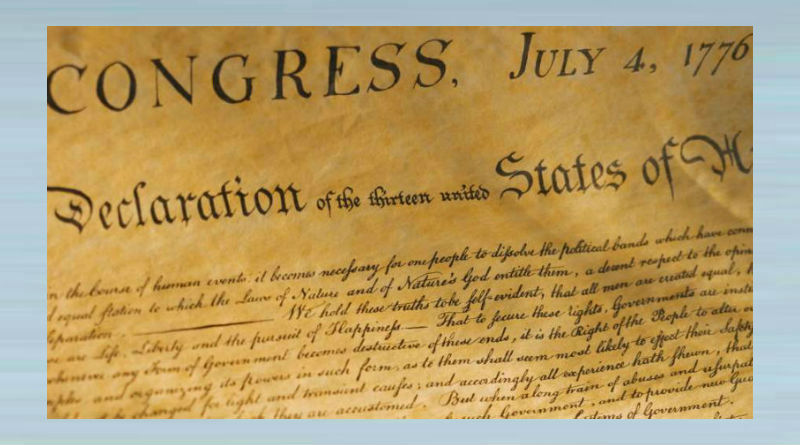 CONGRESS, JULY 4, 1776
Declaration of the thirteen united States of
the Course of human events, it becomes necessary for one people to dissolve the political bands which have conn
equal station to which the Laws of Nature and of Nature's God entitle them, a decent respect to the opin
separation. We hold these truths to be self-evident, that all men are created equal,
are Life, Liberty and the pursuit of Happiness— That to secure these rights, Governments are inst
whenever any Form of Government becomes destructive of these ends, it is the Right of the People to alter
and organizing its powers in such form, as to them shall seem most likely to effect their Safety
be changed for light and transient causes; and accordingly all experience hath shewn, that
they are accustomed. But when a long train of abuses and usurpat
such Government, and to provide new Gua
Systems of Government.